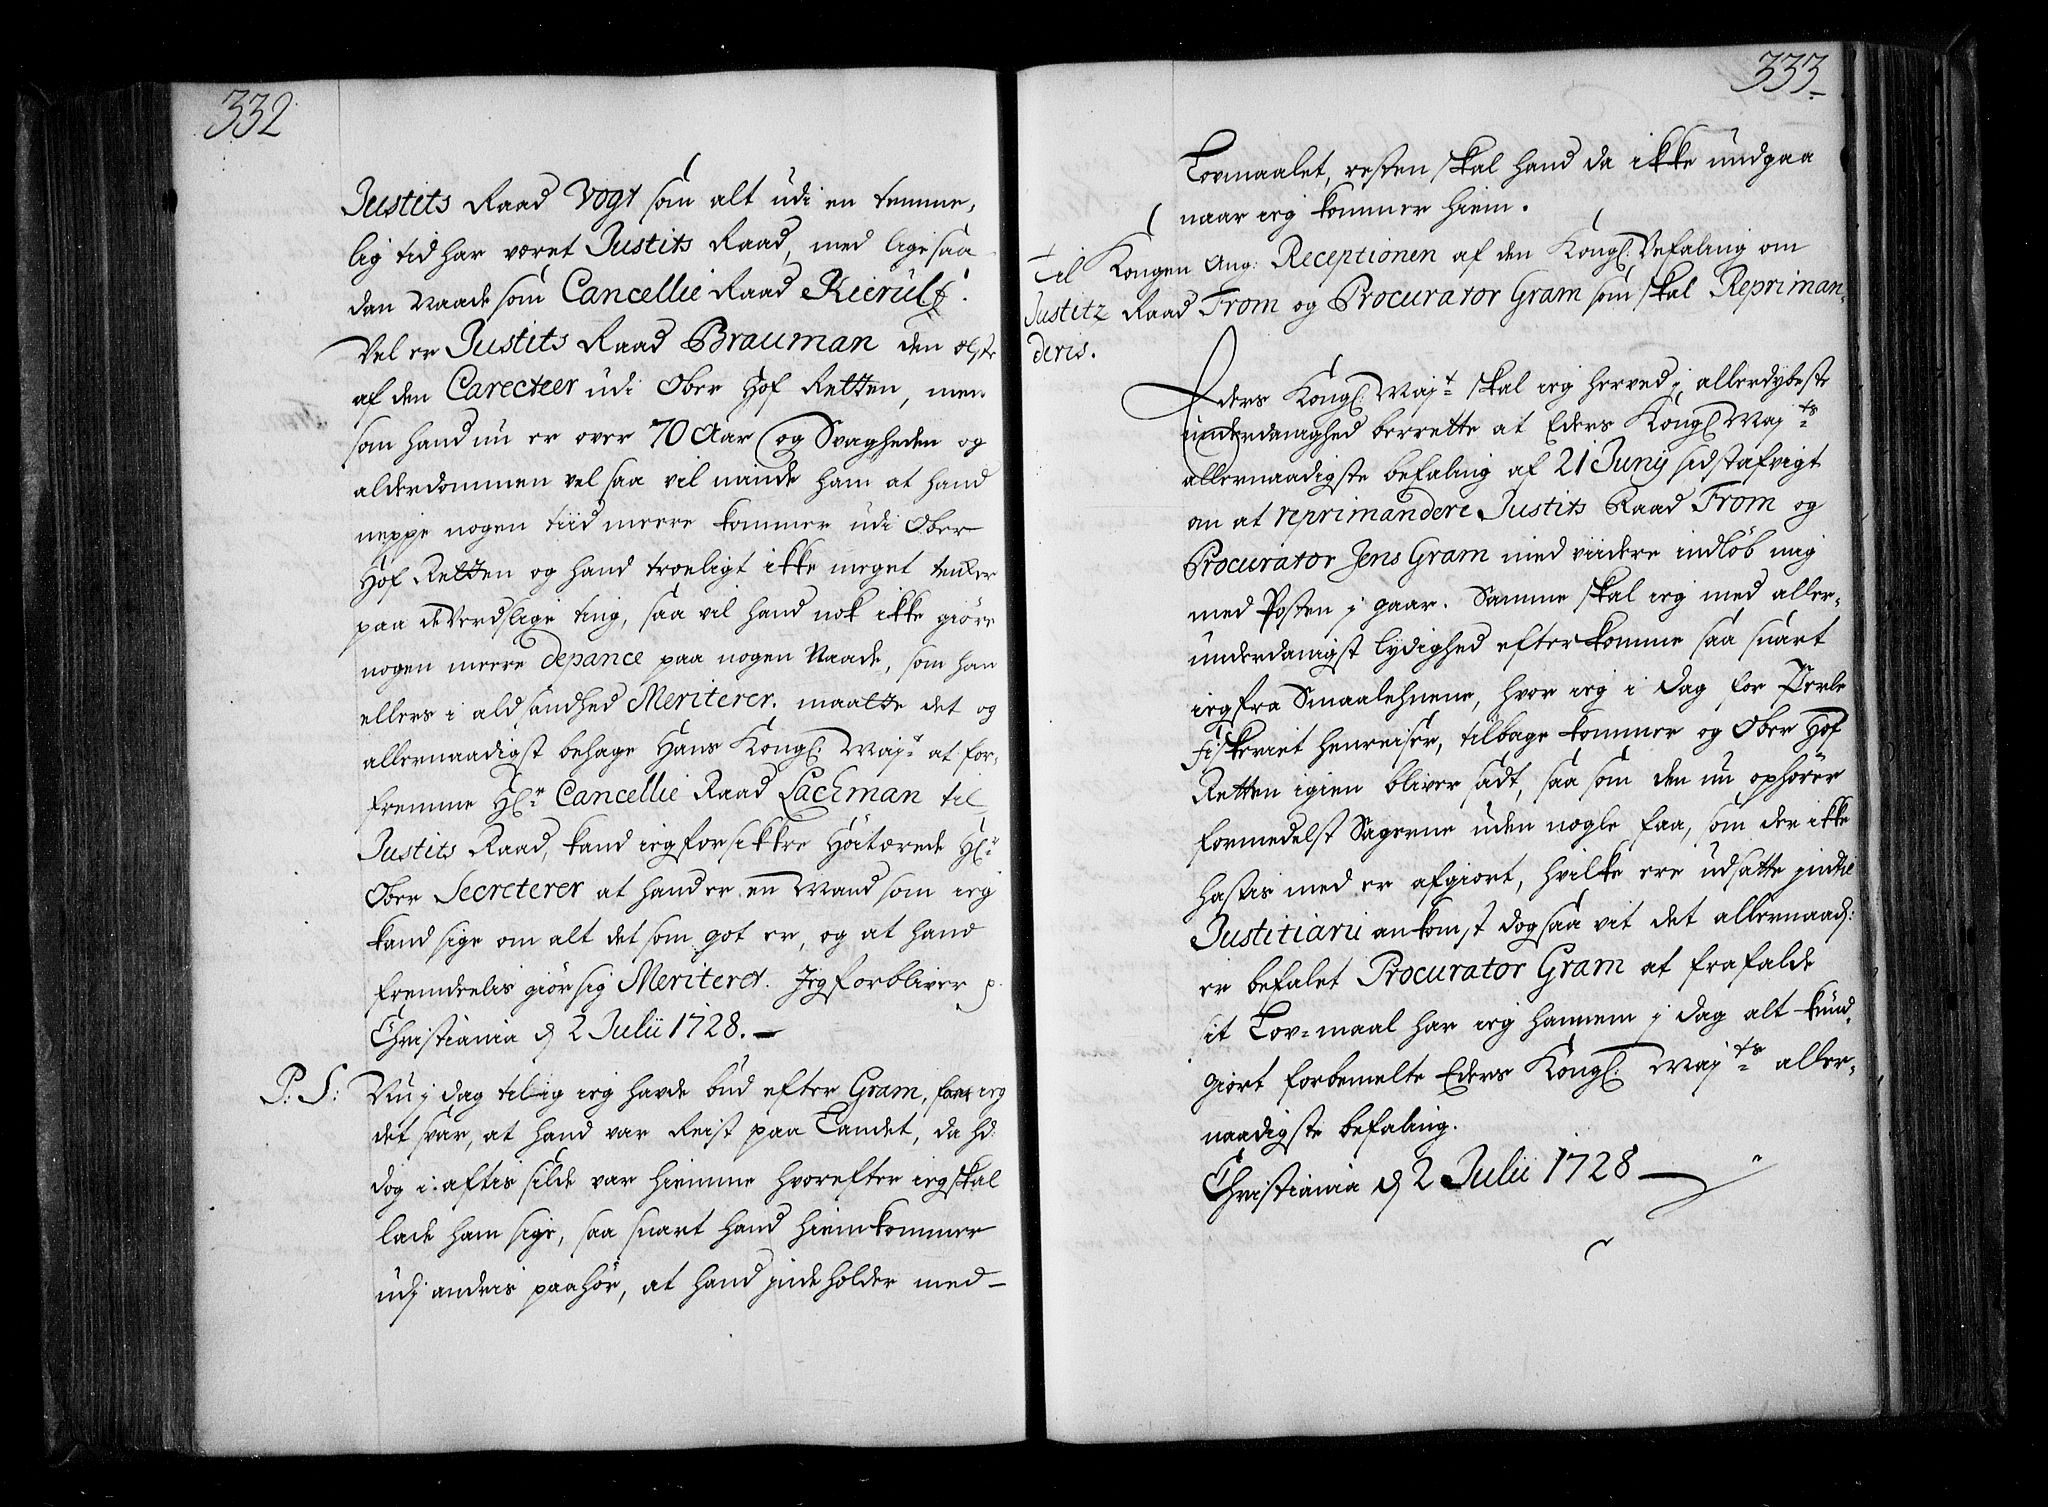 332
Justits Raad Vogt som alt udi en temme,
lig tid har været Justits Raad, med ligesaa
dan Naade som Cancellie Raad Kierulf.
Vel er Justits Raad Brauman den elste
af den Carecteer udi Ober Hof Retten, men
som hand nu er over 70 Aar og Svagheden og
alderdommen vel saa vil minde ham at hand
neppe nogen tiid meere kommer udi Ober
Hof Retten og hand troeligt ikke meget tenker
paa de Verdslige ting, saa vil hand nok ikke giøre
nogen meere depance paa nogen Naade, som han
ellers i ald sandhed Meriterer. maatte det og
allernaadigst behage Hans Kongl: Mayt at for-
fremme Hr Cancellie Raad Lachman til
Justits Raad, kand ieg forsikkre Høitærede Hr
Ober Secreterer at hand er en Mand som ieg
kand sige om alt det som got er, og at hand
fremdeelis giør sig Meriteret. Jeg forbliver p.
Christiania d 2 Julii 1728.
P: S: Nu j dag tilig ieg havde bud efter Gram, fik ieg
det svar, at hand var Reist paa Landet, da hd:
dog i aftis silde var hiemme hvorefter ieg skal
lade ham sige, saa snart hand hiemkommer
udj andris paahør, at hand jndeholder med
333
Tovmaalet, resten skal hand da ikke undgaa
naar ieg kommer hiem.
Til Kongen Ang: Receptionen af den Kongl: Befaling om
Justitz Raad From og Procurator Gram som skal Repriman-
deris.
Eders Kongl: Mayt skal ieg herved j allerdybeste
underdanighed berrette at Eders Kongl Mayts
allernaadigste befaling af 21 Junij sidstafvigt
om at reprimandere Justits Raad From og
Procurator Jens Gram med viidere indløb mig
med Posten j gaar. Samme skal ieg med aller-
underdanigst lydighed efterkomme saa snart
ieg fra Smaalehnene, hvor ieg i dag for Perle
Fiskeriet henreiser, tilbage kommer og Ober Hof
Retten igien bliver sadt, saa som den nu ophører
formedelst Sagerne uden nogle faa, som der ikke
hastis med er afgiort, hvilke ere udsatte jndtil
Justitiarii ankomst dog saa vit det allernaad:
er befalet Procurator Gram at frafalde
sit Tov-maal har ieg hannem j dag alt kund-
giort forbemelte Eders Kongl: Mayts aller-
naadigste befaling.
Christiania d 2 Julii 1728